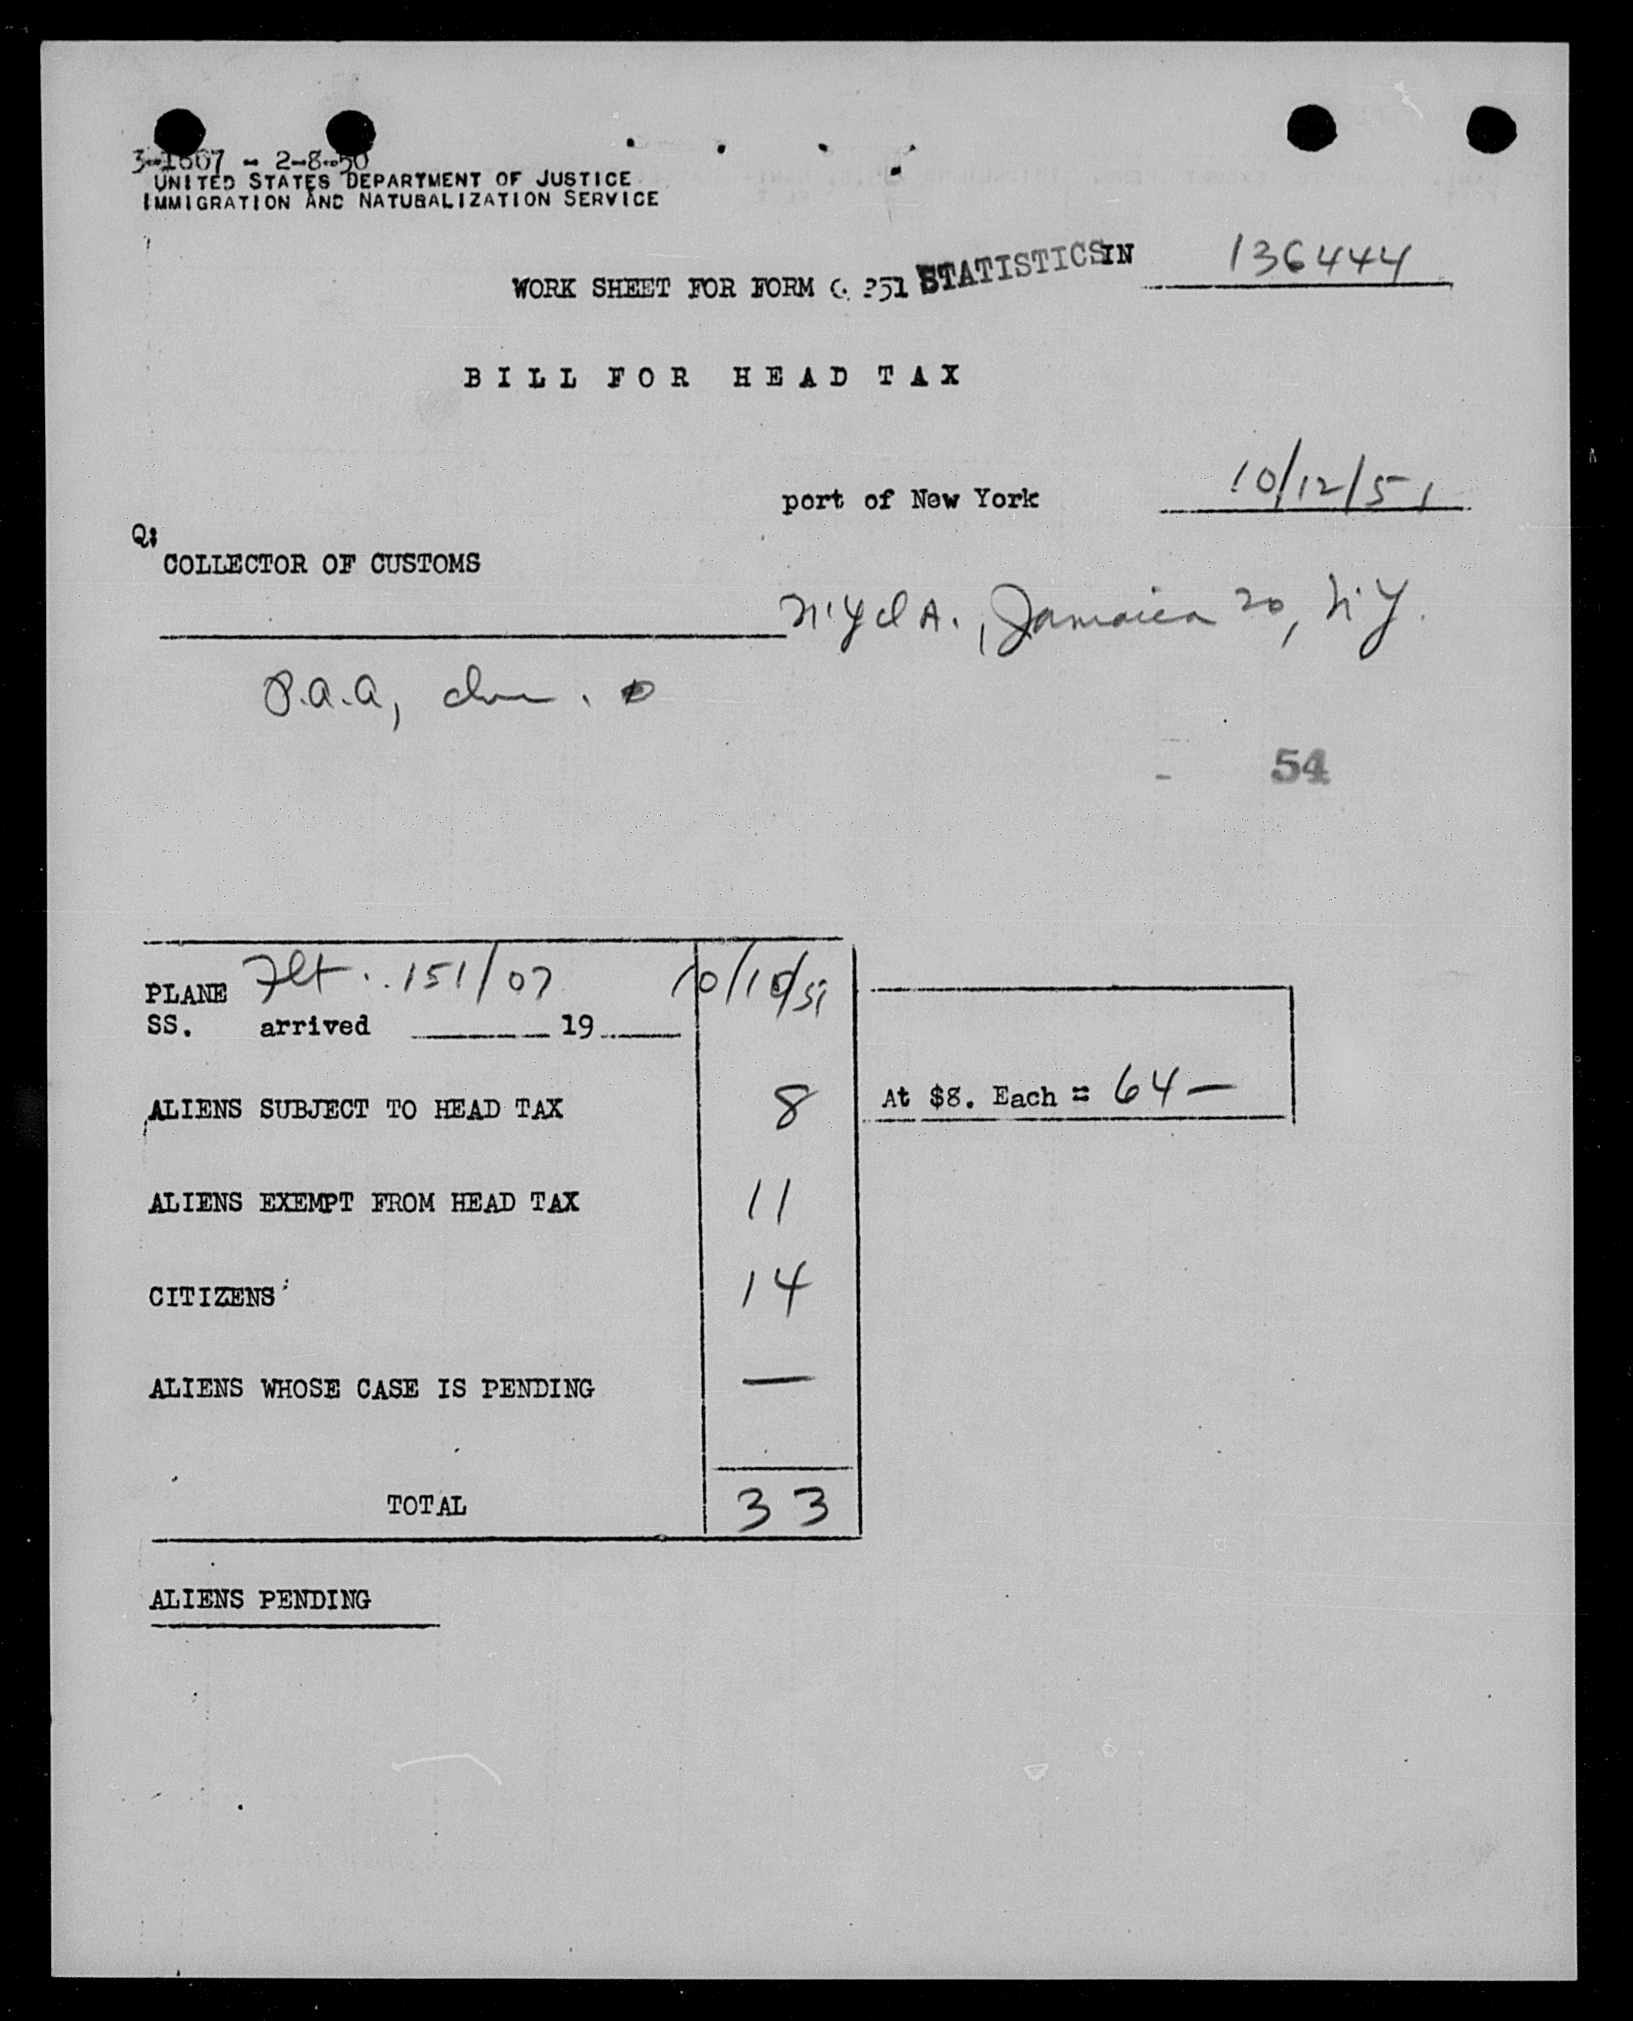 3-1607 - 2-8-50
UNITED STATES DEPARTMENT OF JUSTICE
IMMIGRATION AND NATURALIZATION SERVICE
STATISTICS IN 136444
WORK SHEET FOR FORM 251
BILL FOR HEAD TAX
port of New York 10/12/51
COLLECTOR OF CUSTOMS
N.Y.I.A., Jamaica 20, N.Y.
P.a.a,
54
PLANE Flt. 151/07 10/10/51
SS. arrived 19
ALIENS SUBJECT TO HEAD TAX 8 At $8. Each = 64 —
ALIENS EXEMPT FROM HEAD TAX 11
CITIZENS 14
ALIENS WHOSE CASE IS PENDING —
TOTAL 33
ALIENS PENDING